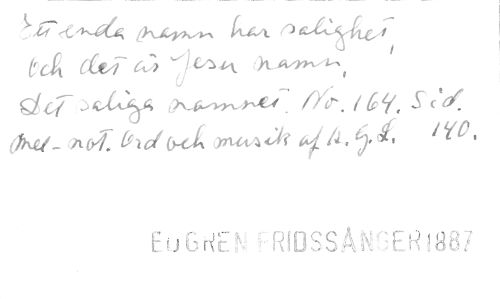 Ett enda namn har salighet,
och det är Jesu namn,
Det saliga namnet. No. 164. Sid.
med-not. Ord och musik af A. G. L. 140.
EUGREN FRIDSSÅNGER 1887